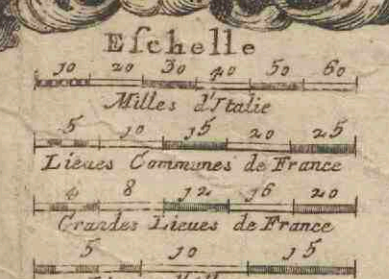 Eſchelle
10 20 30 40 50 60
Milles d'Italie
5 10 15 20 25
Lieues Communes de France
4 8 12 16 20
Grandes Lieues de France
5 10 15